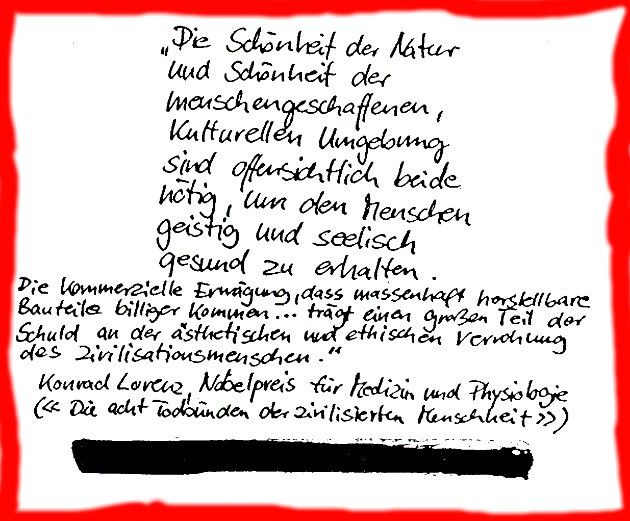 „Die Schönheit der Natur
und Schönheit der
menschengeschaffenen,
kulturellen Umgebung
sind offensichtlich beide
nötig, um den Menschen
geistig und seelisch
gesund zu erhalten.
Die kommerzielle Erwägung, dass massenhaft herstellbare
Bauteile billiger kommen... trägt einen großen Teil der
Schuld an der ästhetischen und ethischen Verrohung
des Zivilisationsmenschen."
Konrad Lorenz, Nobelpreis für Medizin und Physiologie
(<< Die acht Todsünden der zivilisierten Menschheit >>)